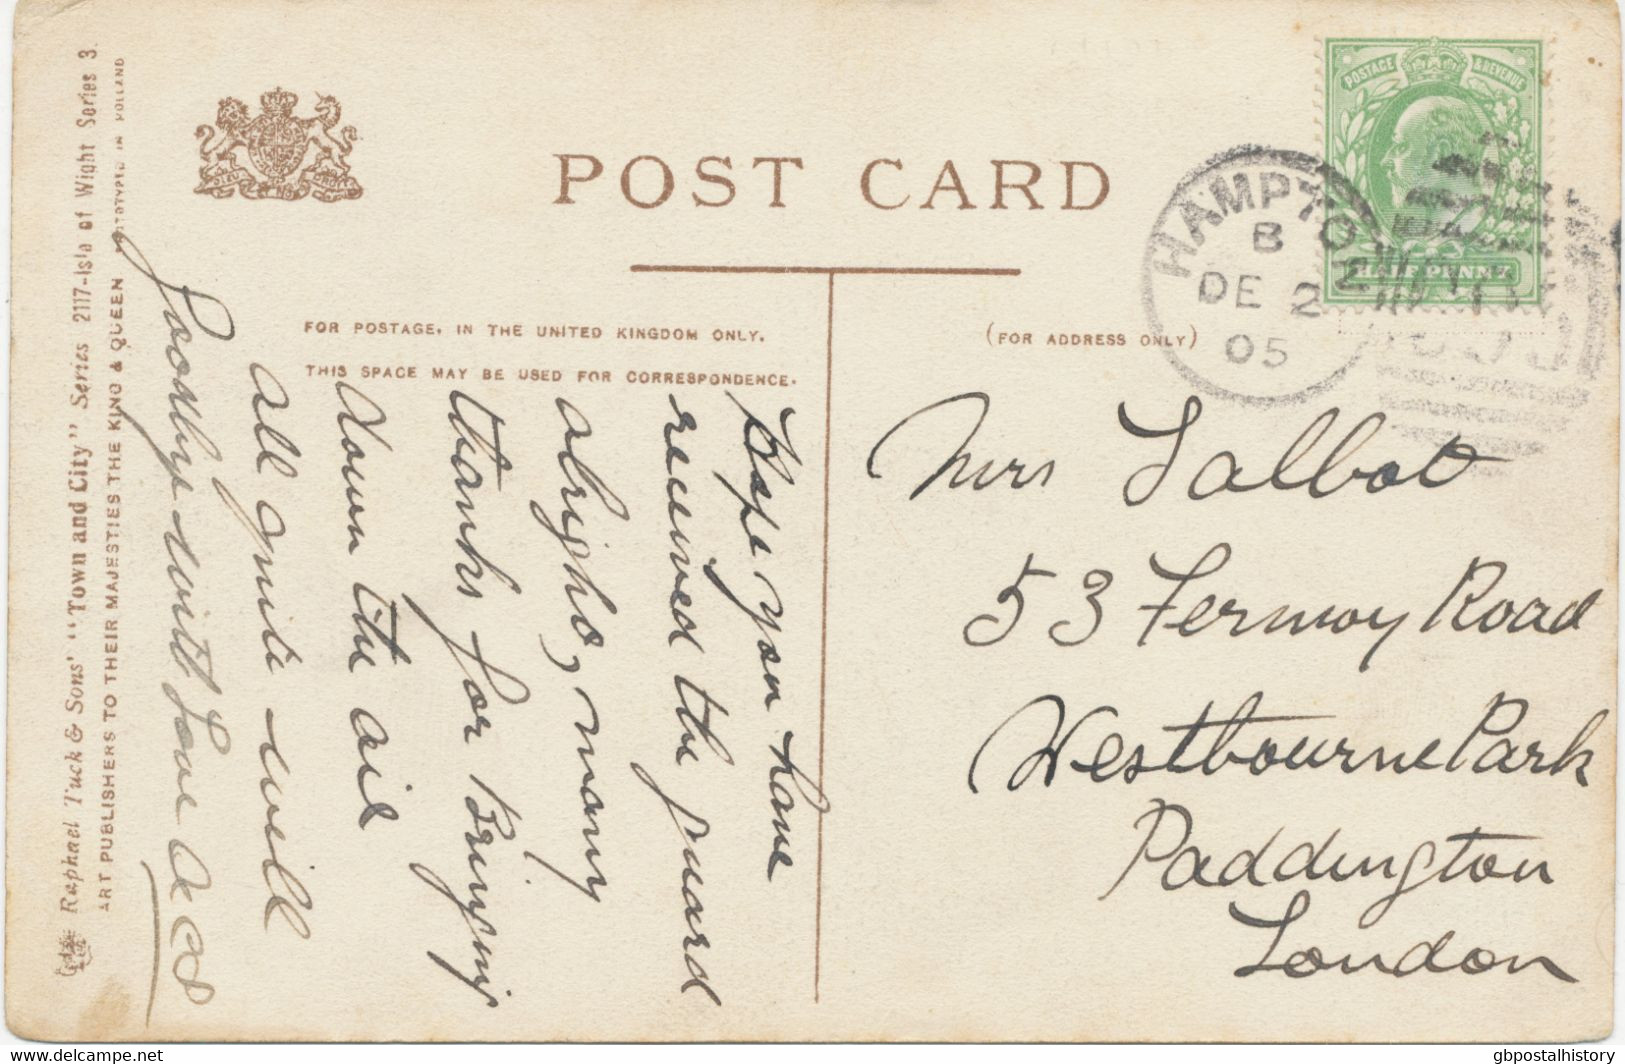 POST CARD
FOR POSTAGE, IN THE UNITED KINGDOM ONLY.
THIS SPACE MAY BE USED FOR CORRESPONDENCE.
(FOR ADDRESS ONLY)
POSTAGE & REVENUE
HALFPENNY
HAMPTON
B
DE 2
05
Mrs Talbot
53 Fermoy Road
Westbourne Park
Paddington
London
Hope you have
received the guard
alright, many
thanks for Bringing
down the
all quite well
Goodbye with Love
Raphael Tuck & Sons' "Town and City" Series 2117-Isle of Wight Series 3.
ART PUBLISHERS TO THEIR MAJESTIES THE KING & QUEEN PHOTOTYPED IN HOLLAND
www.delcampe.net
gbpostalhistory